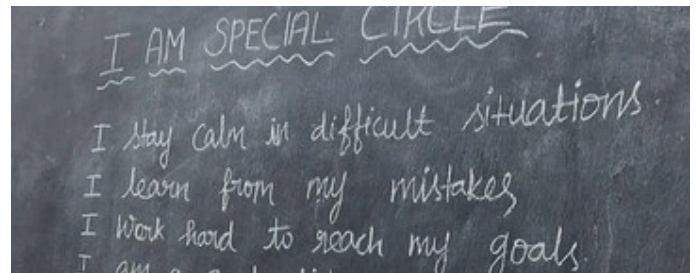 I AM SPECIAL CIRCLE
I stay calm in difficult situations.
I learn from my mistakes
I work hard to reach my goals.
I am a